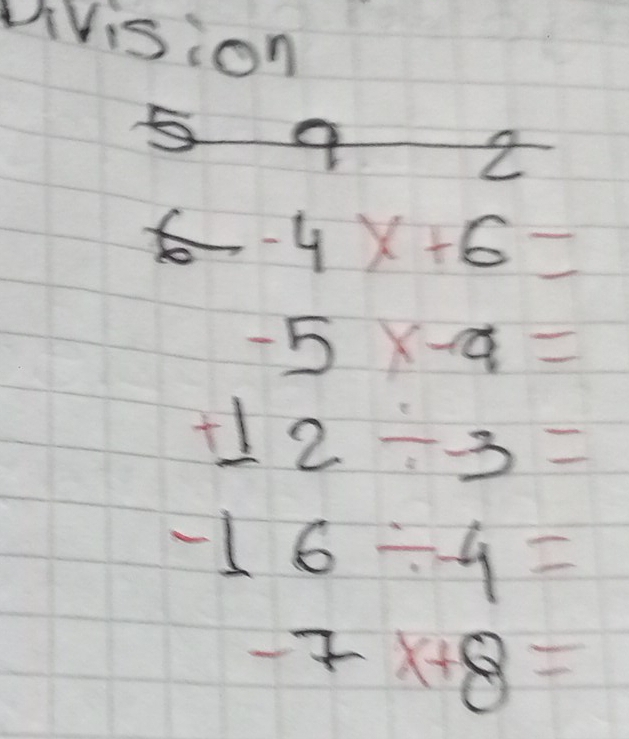 Division
5 9 2
6 -4 x +6 =
-5 x -9 =
+12 ÷ -3 =
-16 ÷ -4 =
-7 x +8 =